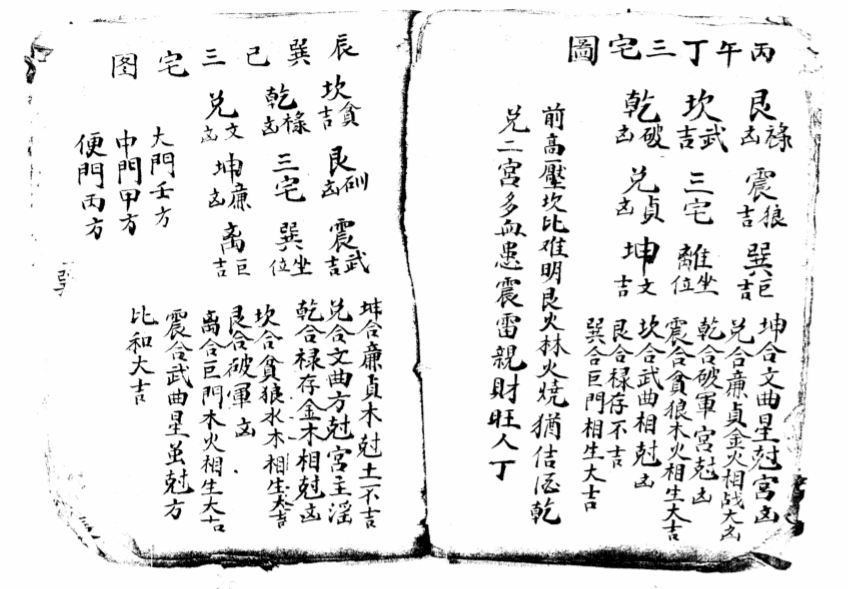 丙午丁三宅圖
艮祿凶 震狼吉 巽巨吉
坎武吉 三宅 離坐位
乾破凶 兌貞凶 坤文吉
坤合文曲星尅宮凶
兌合廉貞金火相战大凶
乾合破軍宮尅凶
震合貪狼木火相生大吉
坎合武曲相尅凶
艮合禄存不吉
巽合巨門相生大吉
前高壓坎比难明艮火林火燒猶佶酒乾
兌二宮多血患震雷親財旺人丁
辰巽巳三宅图
坎貪吉 艮凶 震武吉
乾禄凶 三宅 巽坐位
兌文凶 坤廉凶 离巨吉
大門壬方
中門甲方
便門丙方
坤合廉貞木尅土不吉
兌合文曲方尅宮主滛
乾合禄存金木相尅凶
坎合貪狼水木相生大吉
艮合破軍凶
离合巨門木火相生大吉
震合武曲星虽尅方
比和大吉
巽